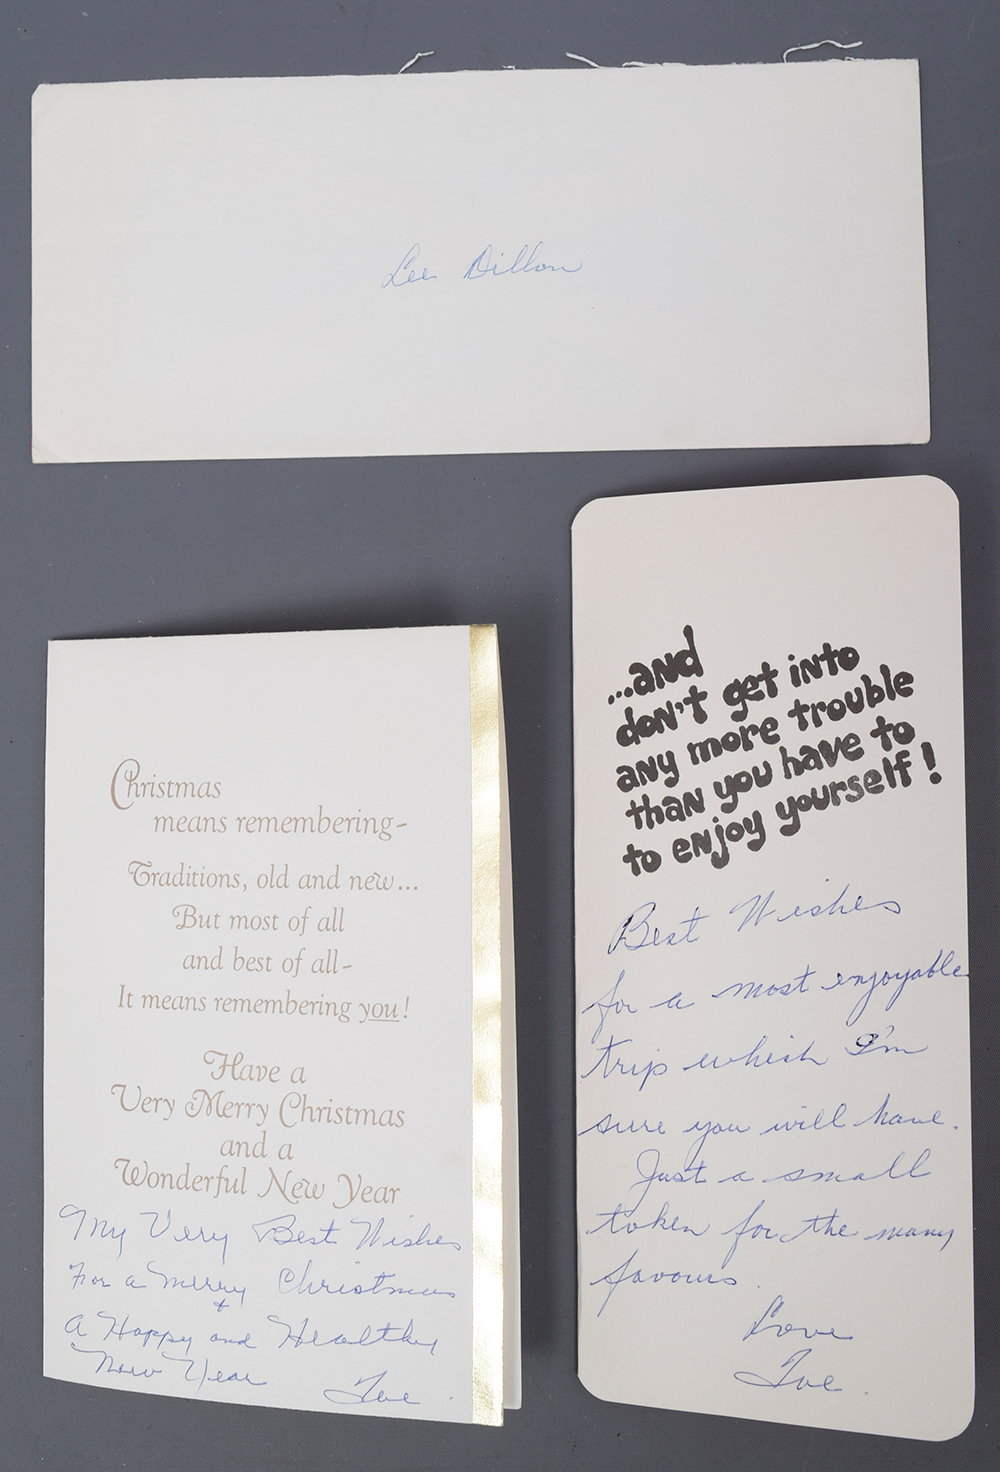 Lee Dillon
Christmas
means remembering-
Traditions, old and new...
But most of all
and best of all-
It means remembering you!
Have a
Very Merry Christmas
and a
Wonderful New Year
My Very Best Wishes
For a Merry Christmas
+
A Happy and Healthy
New Year
...and
don't get into
any more trouble
than you have to
to enjoy yourself!
Best Wishes
for a most enjoyable
trip which I'm
sure you will have.
Just a small
token for the many
favours.
Love